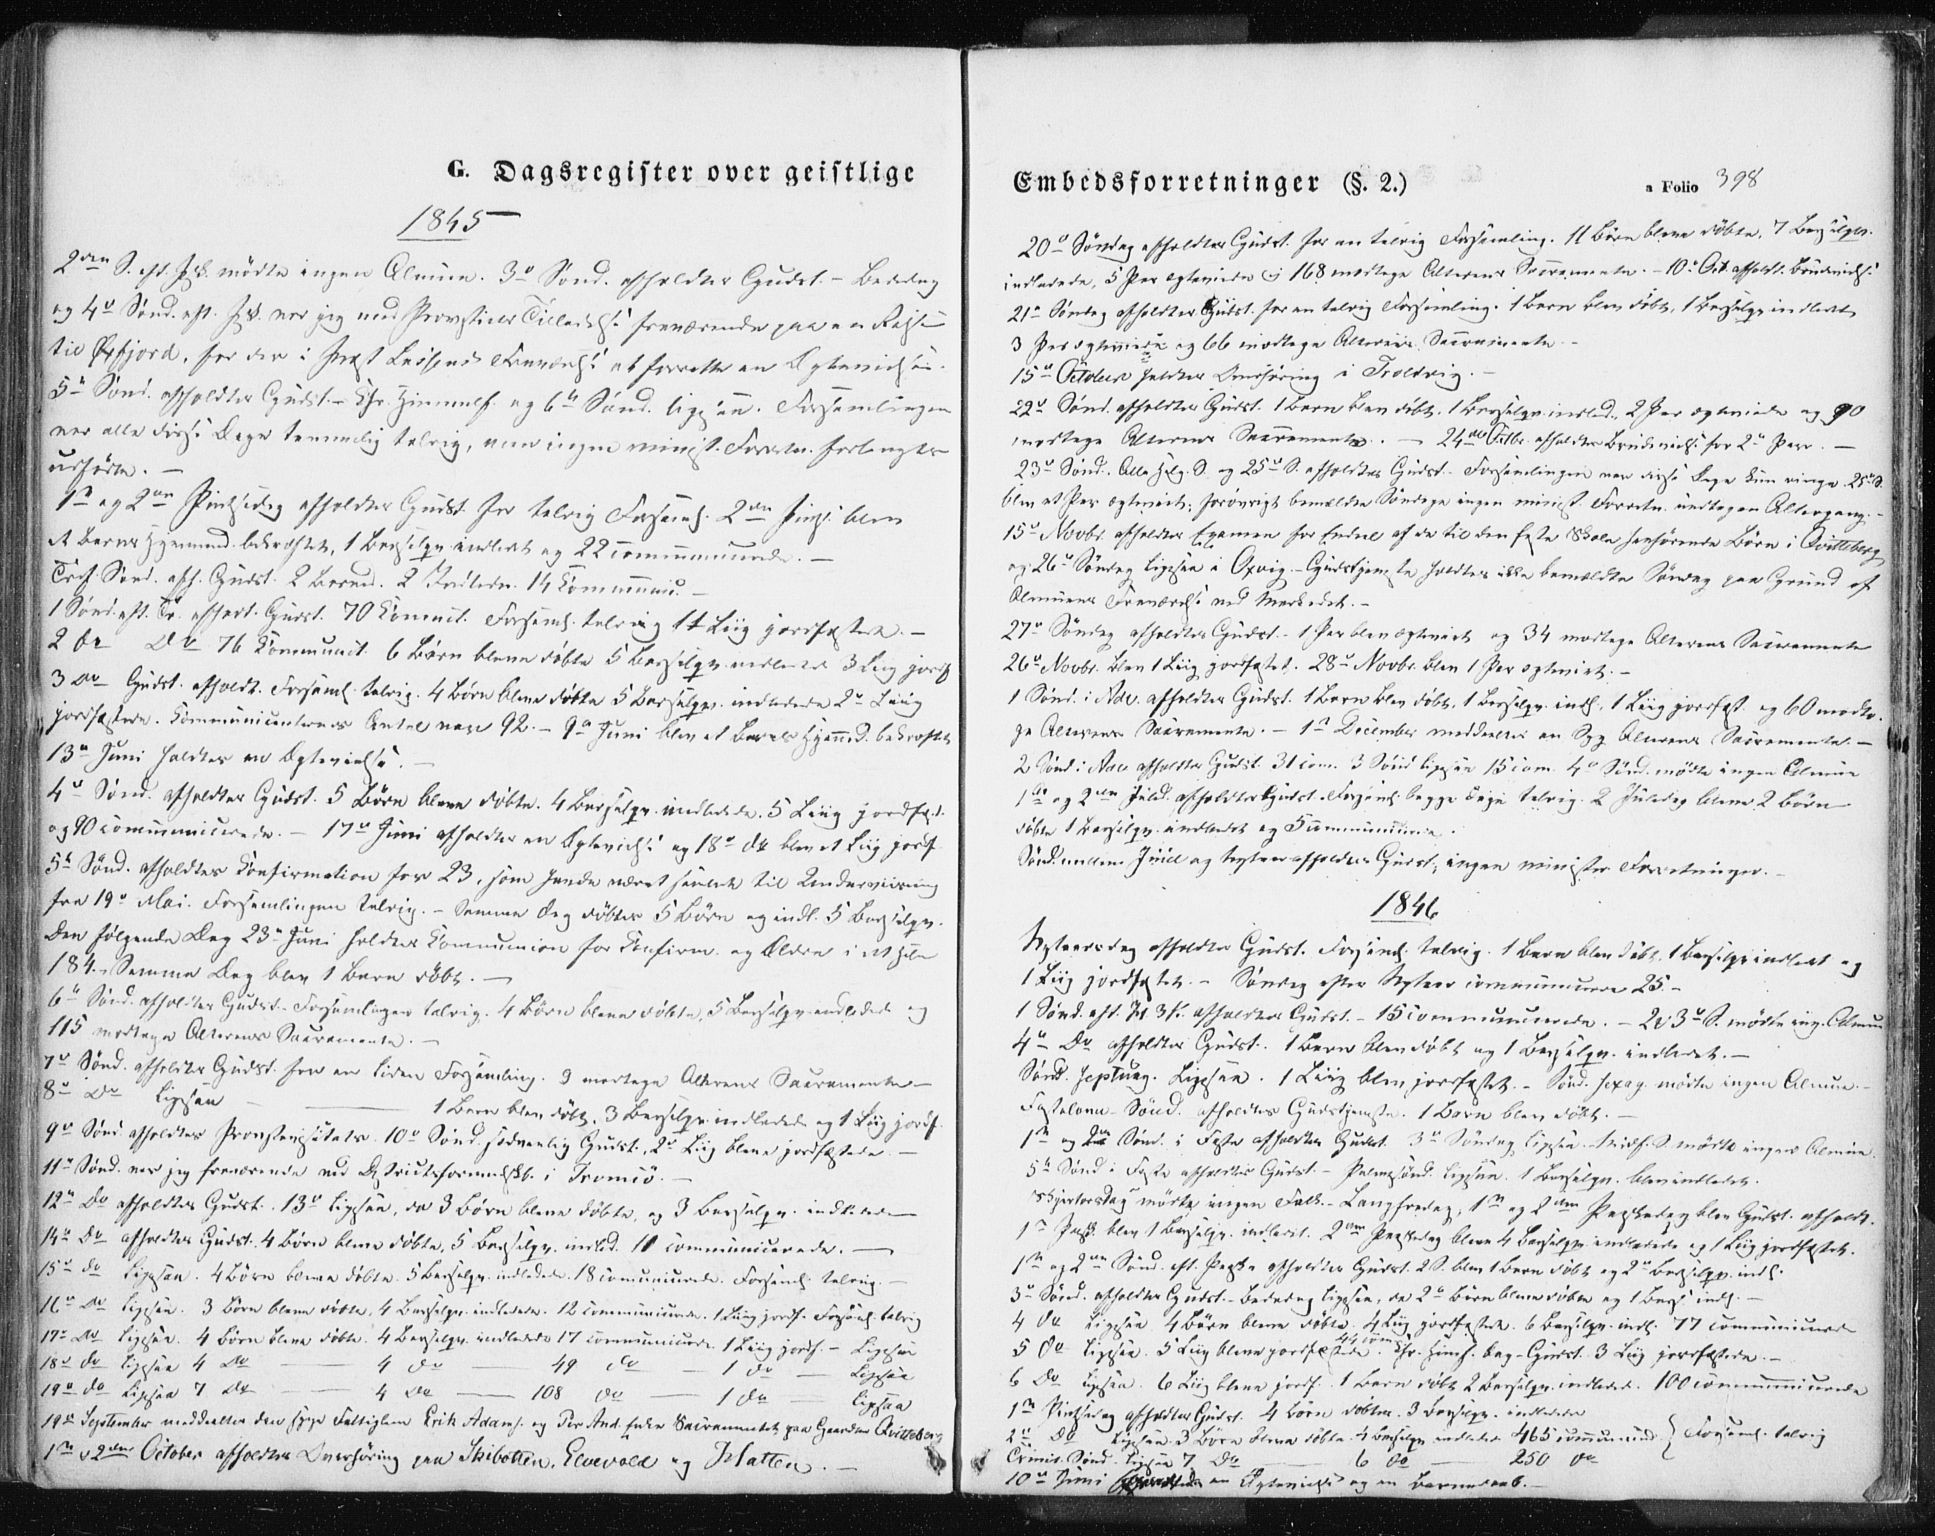 G. Dagsregister over geistlige
1845
2den S. eft. Psk. mödte ingen Almue. 3die Sönd. afholdtes Gudst. – Bededag
og 4de Sönd. eft. Psk. var jeg med Provstiets Tilladelse fraværende paa en Reise
til fjord, for der i Præst Fravær at forrette en Ægtevielse.
5te Sönd. afholdtes Gudst. – Chr. Himmelf. og 6te Sönd. ligesaa. Forsamlingen
var alle disse Dage temmelig talrig, men ingen minist. Forretn. forlangtes
udförte. –
1ste og 2den Pintsedag afholdtes Gudst. for talrig Forsaml. 2den Pints. blev
et Barns Hjemmed. bekræftet, 1 Barselqv. indledt og 22 communicerede. –
Tref. Sönd. afh. Gudst. 2 Barned. 2 Indledn. 14 Communic. –
1 Sönd. eft. Tr. afholdt. Gudst. 70 Commut. Forsaml. talrig 1 Liig jordfæstede. –
2 do do 76 Communit. 6 Börn bleve döbte 5 Barselqv. indledede 3 Liig jordf.
3 do Gudst. afholdt. Forsaml. talrig. 4 Börn bleve döbte 5 Barselqv. indledede 2de Liig
jordfæstede. Communicanternes Antal var 92. – 9de Juni blev et Barns Hjemmed. bekræftet
13de Juni holdtes en Ægtevielse. –
4de Sönd. afholdtes Gudst. 5 Börn bleve döbte. 4 Barselqv. indledede. 5 Liig jordfæst.
og 90 communicerede. – 17de Juni afholdtes en Ægtevielse og 18de do blev et Liig jordf.
5te Sönd. afholdtes Confirmation for 23, som havde været samlede til Underviisning
fra 19de Mai. Forsamlingen talrig. – Samme Dag döbtes 5 Börn og indl. 5 Barselqv.
Den fölgende Dag 23de Juni holdtes Communion for Confirm. og Ældre i et Hele
184. Samme Dag blev 1 Barn döbt. –
6te Sönd. afholdtes Gudst. Forsamlingen talrig. 4 Börn bleve döbte, 5 Barselqv. indledede og
115 modtoge Alterens Sacramente. –
7de Sönd. afholdtes Gudst. for en liden Forsamling. 3 modtoge Alterens Sacramente –
8de Do ligesaa – 1 Barn blev döbt. 3 Barselqv. indledede og 1 Liig jordf.
9de Sönd. afholdtes Provstevisitats. 10de Sönd. sædvanlig Gudst., 2de Liig bleve jordfæstede. –
11te Sönd. var jeg fraværende ved Districtsformandskb. i Tromsö. –
12te Do afholdtes Gudst. 13de ligesaa, da 3 Börn bleve döbte, og 3 Barselqv. indledede –
14de Do afholdtes Gudst. 4 Börn bleve döbte, 5 Barselqv. indled. 11 communicerede. –
15de do ligesaa. 4 Börn bleve döbte. 5 Barselqv. indledede. 18 communicerede. Forsaml. talrig. –
16de Do ligesaa. 3 Börn bleve döbte, 4 Barselqv. indledede. 12 communicerede. 1 Liig jordf. Forsaml. talrig
17de Do ligesaa. 4 Börn bleve döbte. 4 Barselqv. indledede 17 communicerede 1 Liig jordf. – Ligesaa
18de do ligesaa 4 do – 4 do – 49 do – 1 do – Ligesaa
19de do ligesaa 7 do – 4 do – 108 do – 1 do – Ligesaa
19de September meddeeltes den syge Fattiglem Erik Adams. og Per And. Enke Sacramentet paa Gaarden Qvitteberg
1ste og 2den October afholdtes Overhöring paa Skibotten, Elvevold og Hatten. –
Embedsforretninger (§. 2.)
a Folio 398
20de Söndag afholdtes Gudst. for en talrig Forsamling. 11 Börn bleve döbte, 7 Barselqv.
indledede, 5 Par ægteviede og 168 modtoge Alterens Sacramente. – 10de Oct. afholdt. Brudevielse
21de Söndag afholdtes Gudst. for en talrig Forsamling. 1 Barn blev döbt, 1 Barselqv. indledt
3 Par ægteviede og 66 modtoge Alterens Sacramente. –
15de October holdtes Overhöring i Troldvig. –
22de Sönd. afholdtes Gudst. 1 Barn blev döbt. 1 Barselqv. indled., 2 Par ægteviede og 90
modtoge Alterens Sacramente. – 24de Octbr. afholdtes Brudevielse for 2de Par. –
23de Sönd. Alle Helg. S. og 25de S. afholdtes Gudst. – Forsamlingen var disse Dage kun ringe. 25de S.
blev et Par ægteviet, forövrigt bemældte Söndage ingen minist. Forretn. undtagen Altergang. –
15de Novbr. afholdtes Examen for Endeel af de til den faste Skole henhörende Börn i Qvitteberg
og 26de Söndag ligesaa i Oxvig. – Gudstjeneste holdtes ikke bemældte Söndag paa Grund af
Almuens Fraværelse ved Markedet. –
27de Söndag afholdtes Gudst. – 1 Par blev ægteviet og 34 modtoge Alterens Sacramente
26de Novbr. blev 1 Liig jordfæstet. 28de Novbr. blev 1 Par ægteviet. –
1 Sönd. i Adv. afholdtes Gudst. 1 Barn blev döbt, 1 Barselqv. indl., 1 Liig jordfæst. og 60 modto-
ge Alterens Sacramente. – 1ste December meddeeltes en Syg Alterens Sacramente. –
2 Sönd. i Adv. afholdtes Gudst. 31 com. 3 Sönd. ligesaa 15 com. 4de Sönd. mödte ingen Almue
1ste og 2den Juled. afholdtes Gudst. Forsaml. begge Dage talrig. 2 Juledag bleve 2 Börn
döbte 1 Barselqv. indledet og 5 communicerede.
Sönd. mellem Juul og Nytaar afholdtes Gudst., ingen minister. Forretninger. –
1846
Nytaarsdag afholdtes Gudst. Forsaml. talrig. 1 Barn blev döbt, 1 Barselqv. indledet og
1 Liig jordfæstet. – Söndag efter Nytaar communicerede 25. –
1 Sönd. eft. H. 3 K. afholdtes Gudst. – 15 communicerede. – 2. & 3de S. mödte ing. Almue
4de Do afholdtes Gudst. 1 Barn blev döbt og 1 Barselqv. indledet. –
Sönd. Septuag. Ligesaa. 1 Liig blev jordfæstet. – Sönd. Sexag. mödte ingen Almue. –
Fastelavns-Sönd. afholdtes Gudstjeneste. 1 Barn blev döbt. –
1ste og 2den Sönd. i Faste afholdtes Gudst. 3de Söndag ligesaa. Midf. S. mödte ingen Almue.
5te Sönd. i Faste afholdtes Gudst. – Palmesönd. ligesaa. 1 Barselqv. blev indledet.
Skjertorsdag mödte ingen Folk. – Langfredag, 1ste og 2den Paaskedag blev Gudst. afholdt.
1ste Paask. blev 1 Barselqv. indledet. 2den Paaskedag bleve 4 Barselqv. indledede og 1 Liig jordfæstet.
1ste og 2den Sönd. eft. Paaske afholdtes Gudst. 2 S. blev 1 Barn döbt og 2de Barselqv. indl.
3de Sönd. afholdtes Gudst. – Bededag ligesaa, da 2de Börn bleve döbte og 1 Bars. indl. –
4 do ligesaa 4 Börn bleve döbte. 4 Liig jordfæstede. 6 Barselqv. indl. 77 communicerede
5 do ligesaa. 5 Liig bleve jordfæstede. 44 com. Chr. Himf. Dag – Gudst. 3 Liig jordfæstede. –
6 Do ligesaa. 6 Liig bleve jordf. 1 Barn döbt 2 Barselqv. indledet. 100 communicerede
1ste Pintsedag afholdtes Gudst. 4 Börn döbtes. 3 Barselqv. indledede
2den Do ligesaa. 3 Börn bleve döbte. 4 Barselqv. indledede 465 communic. } Forsaml. talrig
Trinit. Sönd. ligesaa 7 do – 6 do – 250 do
10de Juni en Ægtevielse og en Barnedaab. –